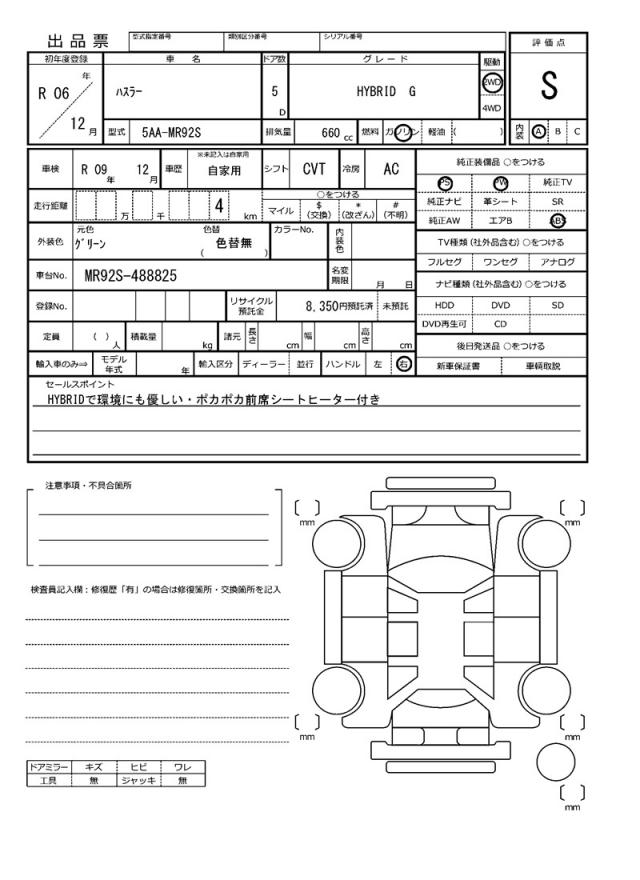 出品票
型式指定番号 類別区分番号 シリアル番号
初年度登録 車名 ドア数 グレード 駆動
R 06 年 12 月 ハスラー 5 D HYBRID G 2WD 4WD
型式 5AA-MR92S 排気量 660 cc 燃料 ガソリン 軽油 ( )
評価点
S
内装 A B C
車検 R 09 年 12 月 車歴 ※未記入は自家用 自家用 シフト CVT 冷房 AC
走行距離 万 千 4 km ○をつける
マイル $(交換) *(改ざん) #(不明)
外装色 元色 グリーン 色替 色替無 ( ) カラーNo. 内装色
車台No. MR92S-488825 名変期限 月 日
登録No. リサイクル預託金 8,350円預託済 未預託
定員 ( ) 人 積載量 kg 諸元 長さ cm 幅 cm 高さ cm
輸入車のみ⇒ モデル年式 年 輸入区分 ディーラー 並行 ハンドル 左 右
純正装備品 ○をつける
PS PW 純正TV
純正ナビ 革シート SR
純正AW エアB ABS
TV種類(社外品含む)○をつける
フルセグ ワンセグ アナログ
ナビ種類(社外品含む)○をつける
HDD DVD SD
DVD再生可 CD
後日発送品 ○をつける
新車保証書 車輌取説
セールスポイント
HYBRIDで環境にも優しい・ポカポカ前席シートヒーター付き
注意事項・不具合箇所
検査員記入欄：修復歴「有」の場合は修復箇所・交換箇所を記入
ドアミラー キズ ヒビ ワレ
工具 無 ジャッキ 無
[ ] mm
[ ] mm
[ ] mm
[ ] mm
[ ] mm